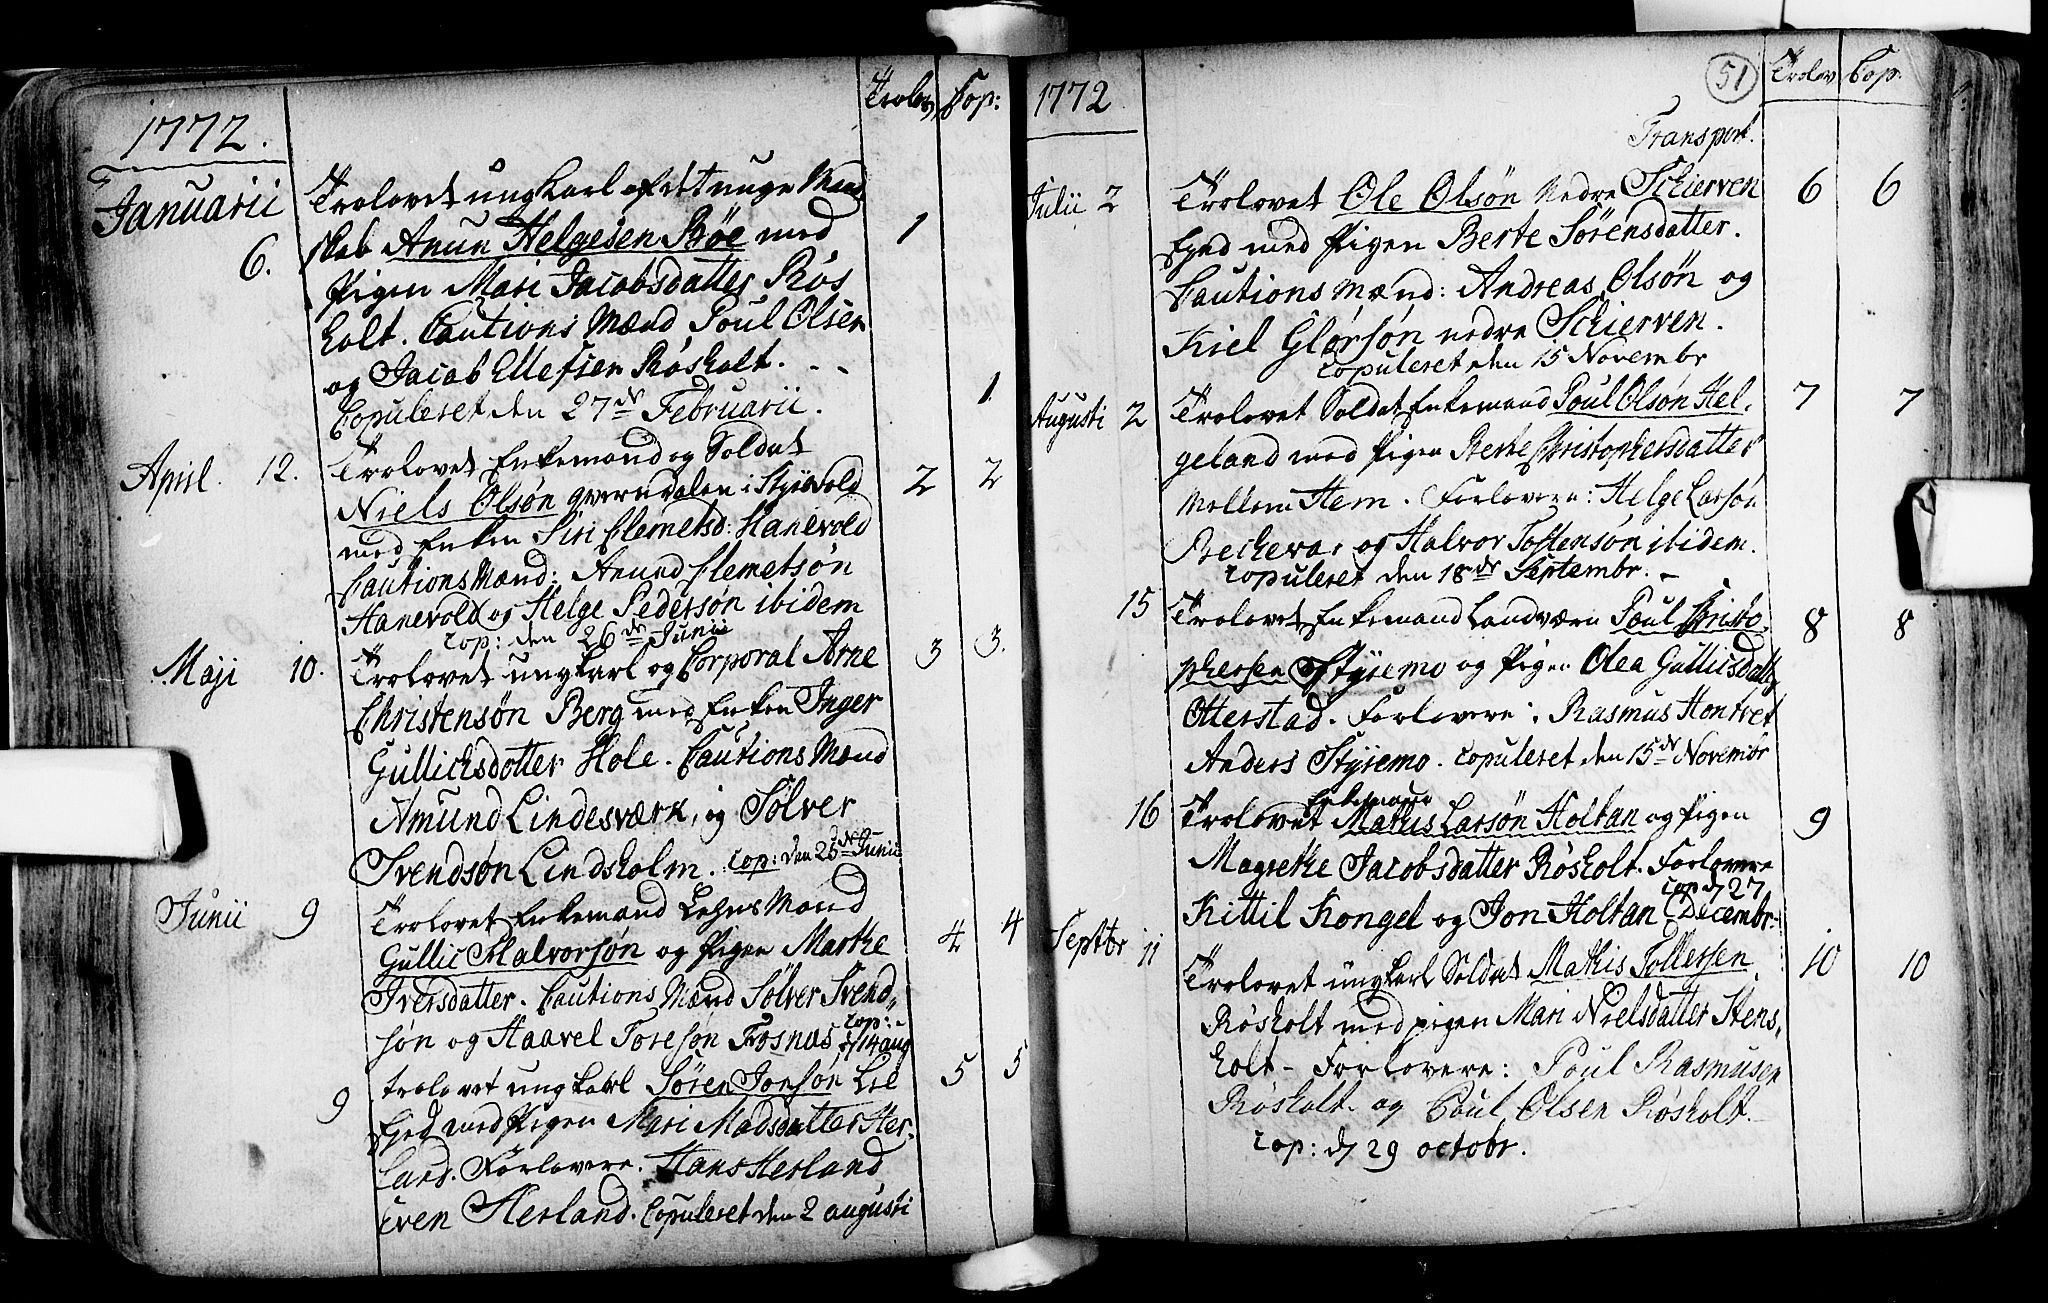 1772.
Trolov. Cop:
Januarii 6. Trolovet ungkarl af et unge Mand
skab Anun Helgesen Bøe med 1
Pigen Mari Jacobsdatter Røs
holt. Cautions Mænd Poul Olsen
og Jacob Ellefsen Røsholt. - - 1
Copuleret den 27de Februarii.
April. 12. Trolovet Enkemand og Soldat
Niels Olsøn i Styrvold 2 2
med Enken Siri Clemetsd: Hanevold
Cautions Mænd: Anund Clemetsøn
Hanevold og Helge Pedersøn ibidem
cop: den 26de Junii
Maji 10. Trolovet ungkarl og Corporal Arne 3 3.
Christensøn Berg med Enken Inger
Gullichsdotter Hole. Cautions Mænd
Amund Lindesværk, og Sølver
Svendsøn Lindsholm. cop: den 26de Junii
Junii 9 Trolovet Enkemand Lehns Mand
Gullic Halvorsøn og Pigen Marthe 4 4
Iversdatter. Cautions Mænd Sølver Svend
søn og Haavel Toresøn Fosnas, cop: d 14 aug
9 trolovet ungkarl Søren Jonsøn Lil 5 5
fjed med Pigen Mari Madsdatter Her-
land. Forlovere. Hans Herland
Even Herland. Copuleret den 2 augusti
1772
51 Trolov Cop:
Transport.
Julii 2 Trolovet Ole Olsøn Nedre Schierven 6 6
Fjed med Pigen Berte Sørensdatter.
Cautions Mænd: Andreas Olsøn og
Kiel Glørsøn nedre Schierven.
Copuleret den 15 Novembr
Augusti 2 Trolovet Soldat Enkemand Poul Olsøn Hel- 7 7
geland med Pigen Berte Christophersdatter
Mellem Hem. Forlovere: Helge Larsøn
Bechevar og Halvor Tostensøn ibidem.
Copuleret den 18de Septembr. -
15 Trolovet Enkemand Landværn Poul Christo- 8 8
phersen Styremo og Pigen Olea Gullicsdatter
Otterstad. Forlovere: Rasmus Hontvet
Anders Styremo. copuleret den 15de Novembr
Enkemand
16 Trolovet Mathis Larsøn Holtan og Pigen 9
Magrethe Jacobsdatter Røsholt. Forlovere
Kittil Kongel og Jon Holtan cop d 27 Decembr.
Septbr 11 Trolovet ungkarl Soldat Mathis Tollefsen 10 10
Røsholt med pigen Mari Nielsdatter Stens-
holt - Forlovere: Poul Rasmusen
Røsholt. og Poul Olsen Røsholt.
cop: d 29 octobr.